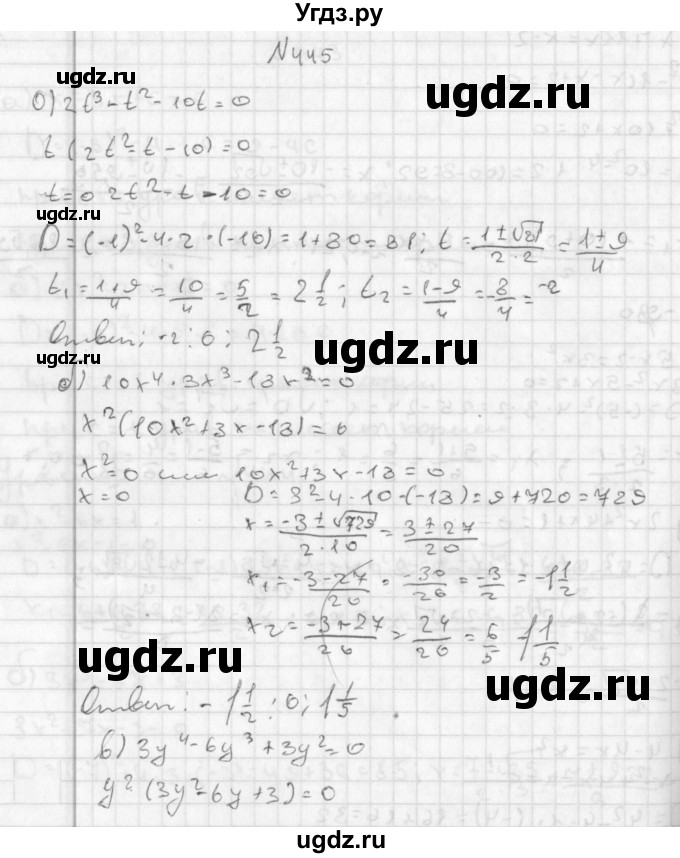 Угдз.ру
N445
ugdz.ru ugdz.ru
а) 2t³ - t² - 10t = 0
t(2t² - t - 10) = 0
ugdz.ru
t = 0 2t² - t - 10 = 0
ugdz.ru
D = (-1)² - 4 · 2 · (-10) = 1 + 80 = 81; t = (1 ± √81)/(2 · 2) = (1 ± 9)/4
t₁ = (1+9)/4 = 10/4 = 5/2 = 2 1/2; t₂ = (1-9)/4 = -8/4 = -2
Ответ: -2; 0; 2 1/2
ugdz.ru ugdz.ru
б) 10x⁴ + 3x³ - 18x² = 0
x²(10x² + 3x - 18) = 0
x² = 0 или 10x² + 3x - 18 = 0
x = 0 D = 3² - 4 · 10 · (-18) = 9 + 720 = 729
ugdz.ru
x = (-3 ± √729)/(2 · 10) = (3 ± 27)/20
ugdz.ru
x₁ = (-3-27)/20 = -30/20 = -3/2 = -1 1/2
x₂ = (-3+27)/20 = 24/20 = 6/5 = 1 1/5
ugdz.ru ugdz.ru
Ответ: -1 1/2; 0; 1 1/5.
в) 3y⁴ - 6y³ + 3y² = 0
ugdz.ru
y²(3y² - 6y + 3) = 0
ugdz.ru
ugdz.ru